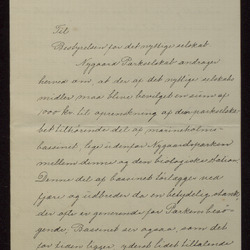 Til
Bestyrelsen for det nyttige selskab
Nygaard Parkselskab andrager
herved om, at der af det nyttige selskabs
midler maa blive bevilget en sum af
1000 Kr til oprensning af den parkselska-
bet tilhørende del af marineholms-
bassinet, lige udenfor Nygaardsparken
mellem denne og den biologiske station
Denne del af bassinet tørlægges ved
fjære og udbreder da en betydelig stank,
der ofte er generende for Parkens besø-
gende. Bassinet ser ogsaa, som det
for tiden ligger yderst lidet tiltalende